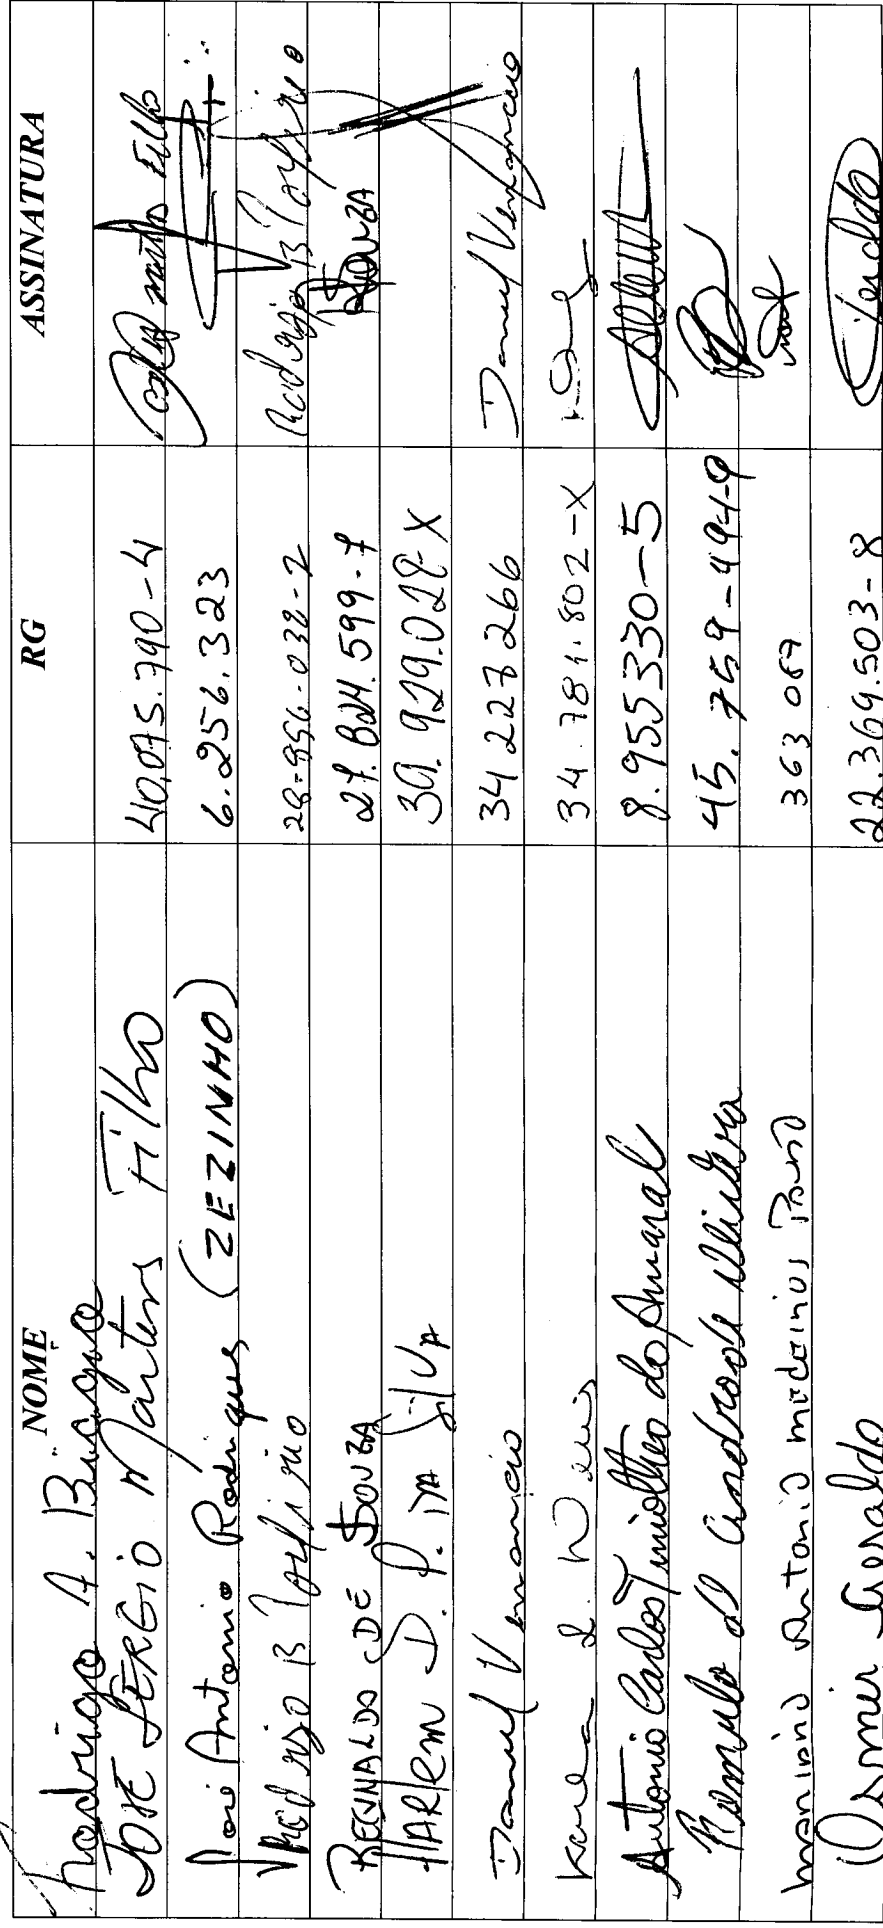 NOME RG ASSINATURA
Rodrigo A.
JOSÉ SÉRGIO Martins Filho 40.075.790-4 Martins Filho
José Antonio Rodrigues (ZEZINHO) 6.256.323
Rodrigo B Porfirio 28-956-032-2 Rodrigo B Porfirio
REGINALDO DE SOUZA 27.824.599-7 SOUZA
HARlem D. P. DA SilVA 39.929.028-X
Daniel Venancio 34 227 266 Daniel Venancio
34.781.802-X
Antonio Carlos Timotheo do Amaral 8.955330-5
Romulo de Andrade 45.759-494-9
mariano Antonio medeiros 363 087
Osmir Geraldo 22.369.503-8 Geraldo